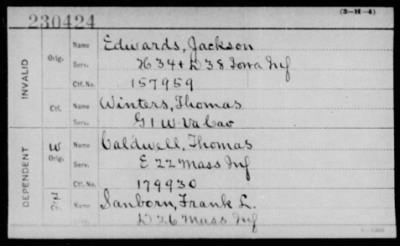 (3-H-4)
230424
INVALID
Orig. Name Edwards, Jackson
Serv. H 34 & D 38 Iowa Inf
Ctf. No. 157959
Ctf. Name Winters, Thomas
Serv. G 1 W Va Cav
DEPENDENT
W Orig. Name Caldwell, Thomas
Serv. E 22 Mass Inf
Ctf. No. 179930
Name Sanborn, Frank L.
D 26 Mass Inf